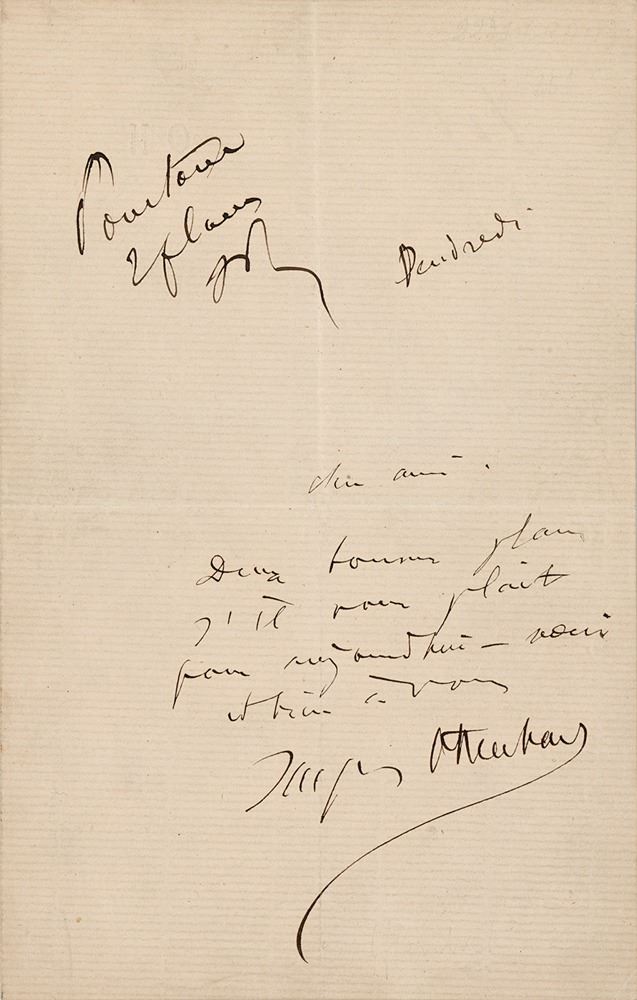 Pourtour
2 places
Vendredi
cher ami.
Deux bonnes places
s'il vous plait
pour aujourd'hui – merci
et bien à vous
Jacques Offenbach